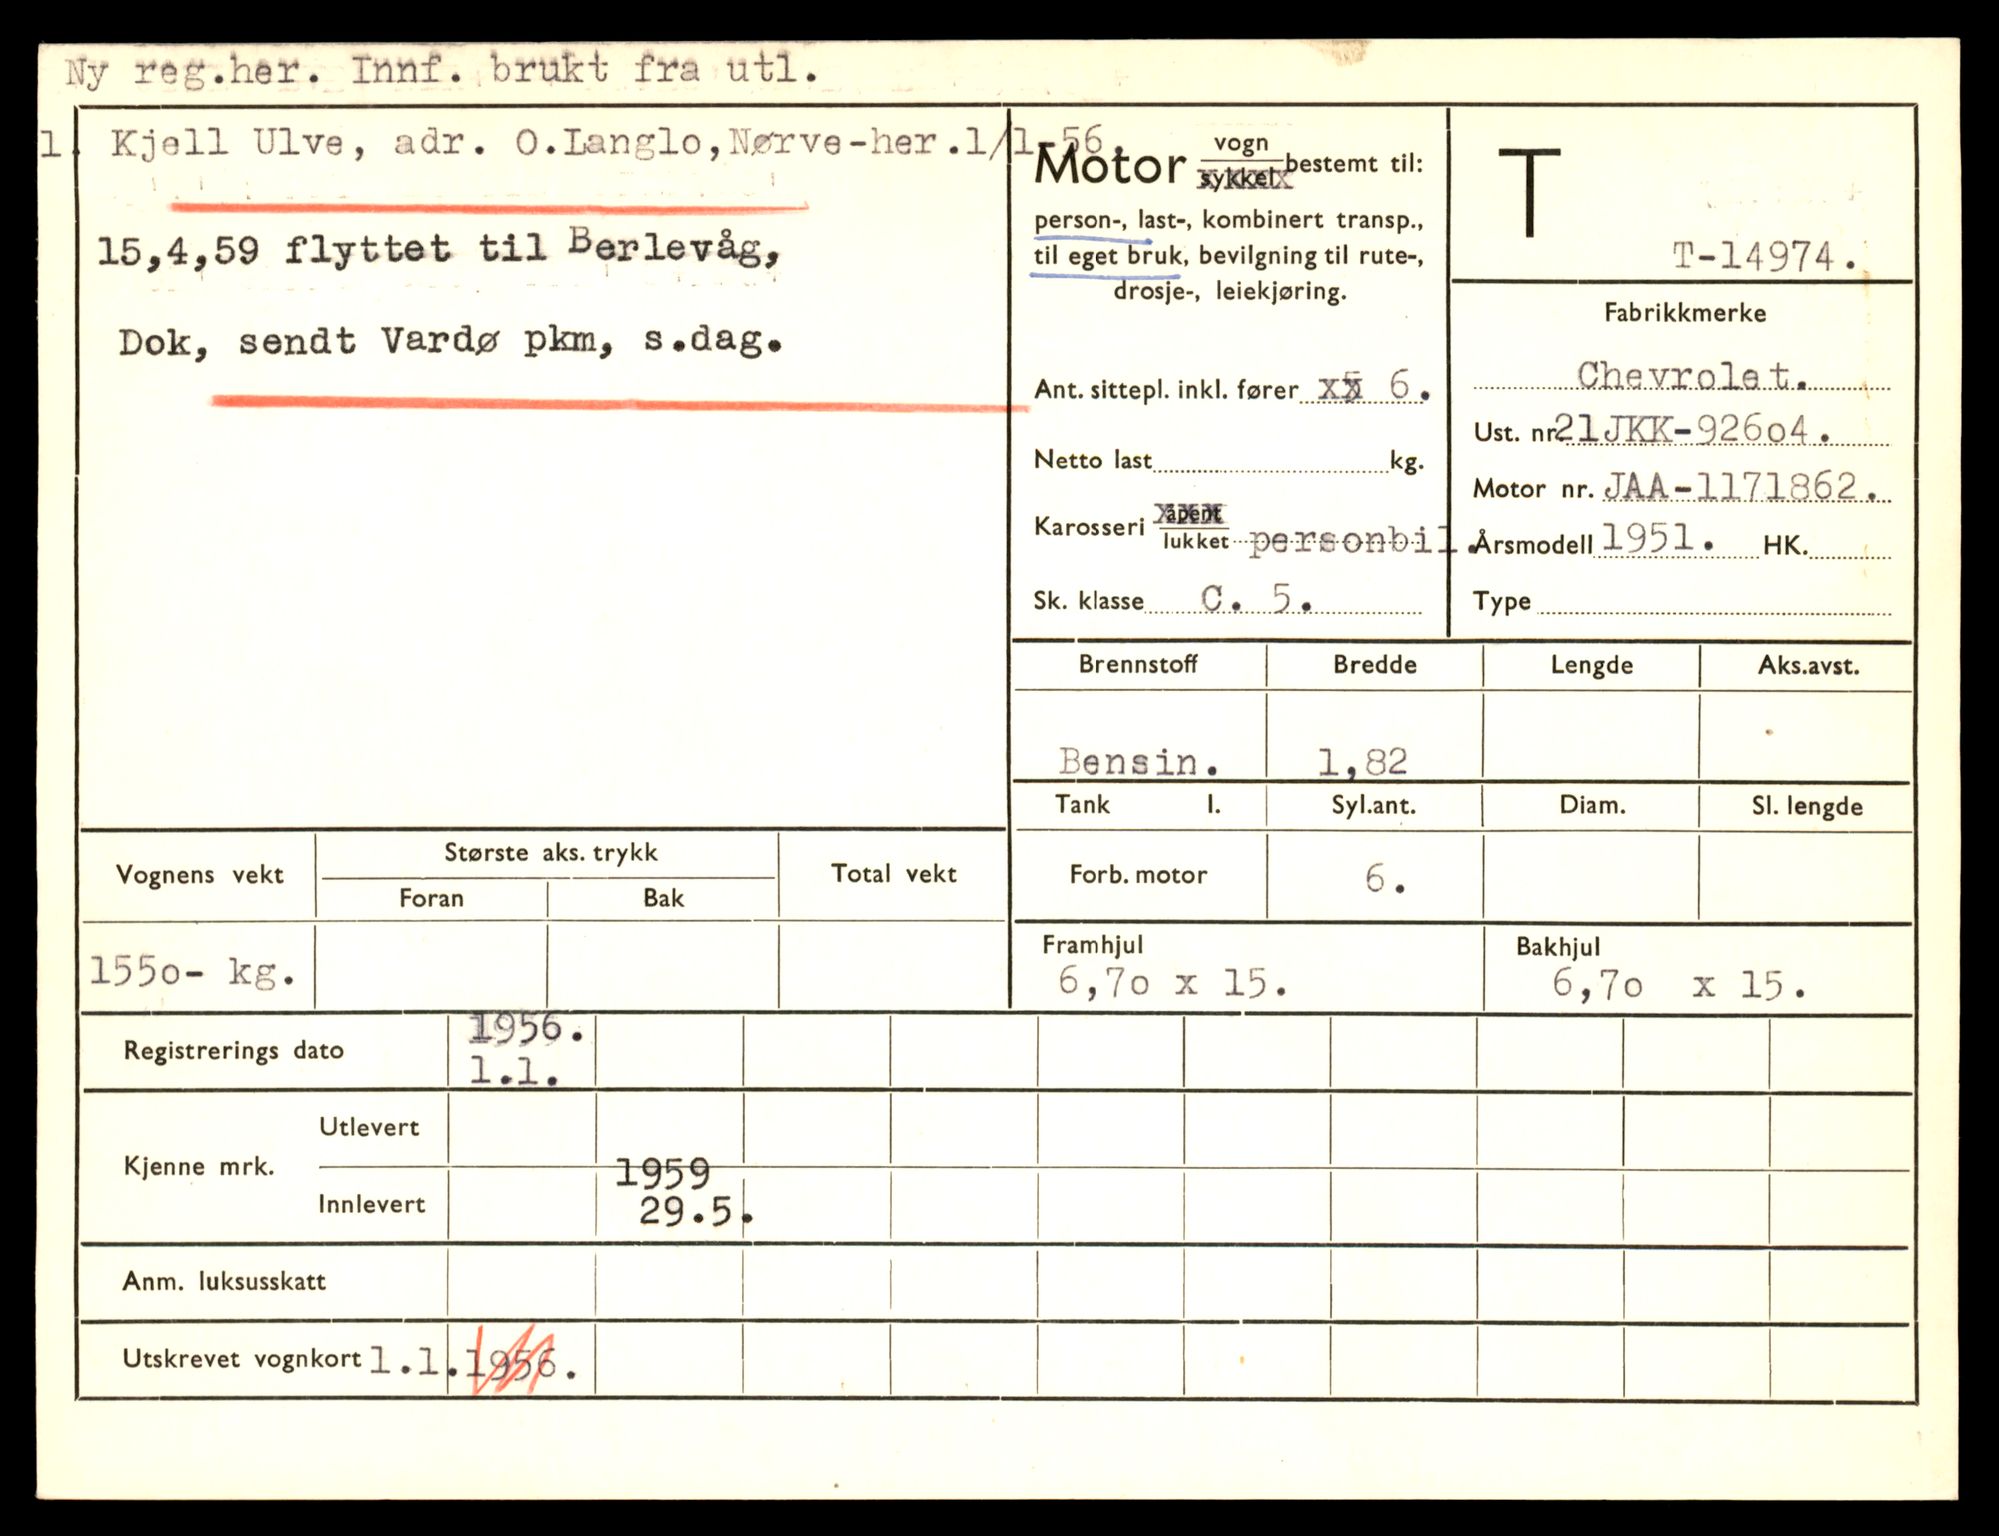 Ny reg.her. Innf. brukt fra utl.
1. Kjell Ulve, adr. O.Langlo,Nørve-her.1/1-56.
15,4,59 flyttet til Berlevåg,
Dok, sendt Vardø pkm, s.dag.
Motor vogn sykkel bestemt til:
person-, last-, kombinert transp.,
til eget bruk, bevilgning til rute-,
drosje-, leiekjøring.
Ant. sittepl. inkl. fører 6.
Netto last kg.
Karosseri åpent lukket personbil.
Sk. klasse C. 5.
T
T-14974.
Fabrikkmerke
Chevrolet.
Ust. nr. 21JKK-926o4.
Motor nr. JAA-1171862.
Årsmodell 1951. HK.
Type
Brennstoff Bredde Lengde Aks.avst.
Bensin. 1,82
Tank l. Syl.ant. Diam. Sl. lengde
Forb. motor 6.
Framhjul Bakhjul
6,7o x 15. 6,7o x 15.
Vognens vekt Største aks. trykk Total vekt
Foran Bak
155o- kg.
Registrerings dato 1956.
1.1.
Kjenne mrk. Utlevert
Innlevert 1959
29.5.
Anm. luksusskatt
Utskrevet vognkort 1.1.1956.